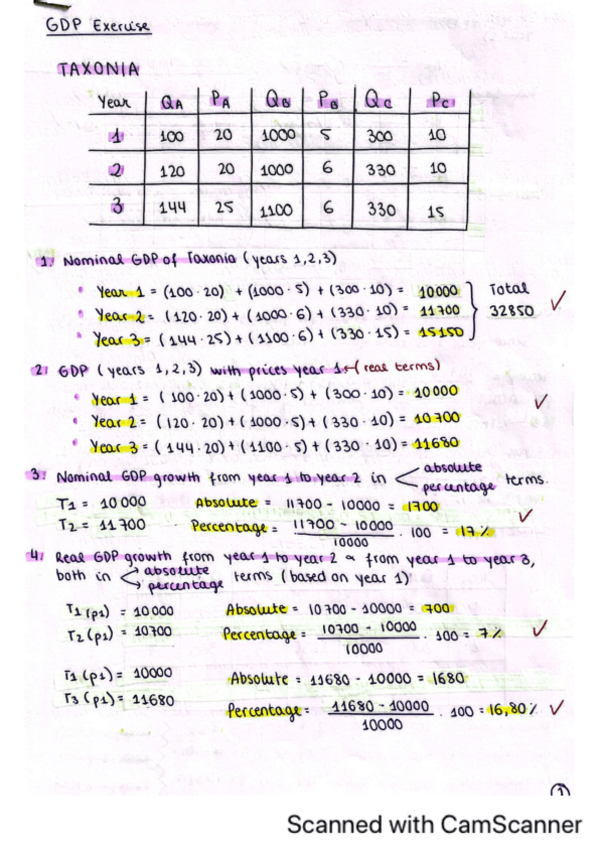 GDP Exercise
TAXONIA
Year QA PA QB PB QC PC
1 100 20 1000 5 300 10
2 120 20 1000 6 330 10
3 144 25 1100 6 330 15
1. Nominal GDP of Taxonia (years 1,2,3)
• Year 1 = (100·20) + (1000·5) + (300·10) = 10000
• Year 2 = (120·20) + (1000·6) + (330·10) = 11700
• Year 3 = (144·25) + (1100·6) + (330·15) = 15150
Total
32850 ✓
2. GDP (years 1,2,3) with prices year 1. (real terms)
• Year 1 = (100·20) + (1000·5) + (300·10) = 10000
• Year 2 = (120·20) + (1000·5) + (330·10) = 10700 ✓
• Year 3 = (144·20) + (1100·5) + (330·10) = 11680
3. Nominal GDP growth from year 1 to year 2 in < absolute percentage terms.
T1 = 10000 Absolute = 11700 - 10000 = 1700
T2 = 11700 Percentage = 11700 - 10000 / 10000 · 100 = 17% ✓
4. Real GDP growth from year 1 to year 2 & from year 1 to year 3,
both in < absolute percentage terms (based on year 1)
T1 (p1) = 10000 Absolute = 10700 - 10000 = 700
T2 (p1) = 10700 Percentage = 10700 - 10000 / 10000 · 100 = 7% ✓
T1 (p1) = 10000 Absolute = 11680 - 10000 = 1680
T3 (p1) = 11680 Percentage = 11680 - 10000 / 10000 · 100 = 16,80% ✓
1
Scanned with CamScanner